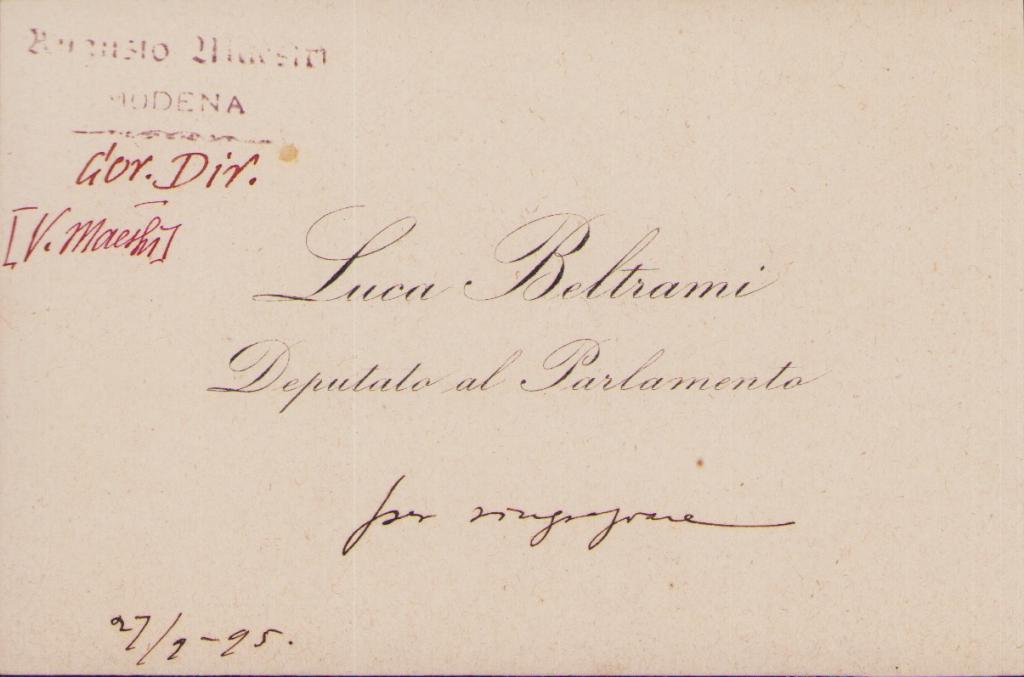 Augusto Maestri
MODENA
Cor. Dir.
[V. Maestri]
Luca Beltrami
Deputato al Parlamento
per ringraziare
27/9-95.